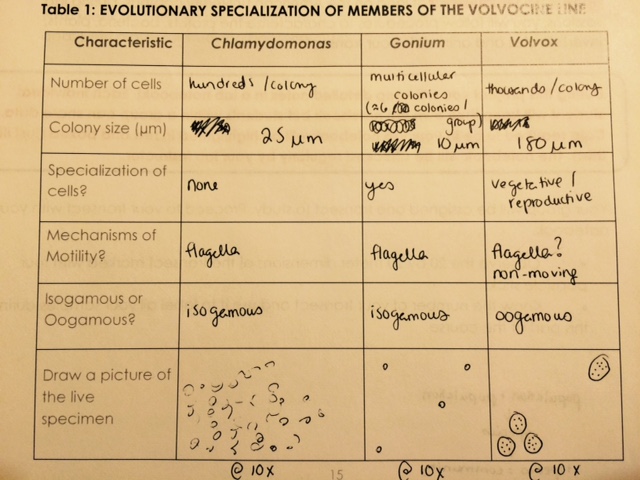 Table 1: EVOLUTIONARY SPECIALIZATION OF MEMBERS OF THE VOLVOCINE LINE
Characteristic Chlamydomonas Gonium Volvox
Number of cells hundreds /colony multicellular colonies (≈6 colonies / group) thousands /colony
Colony size (µm) 25 µm 10 µm 180 µm
Specialization of cells? none yes vegetative / reproductive
Mechanisms of Motility? flagella flagella flagella? non-moving
Isogamous or Oogamous? isogamous isogamous oogamous
Draw a picture of
the live
specimen
@ 10x 15 @ 10x @ 10x